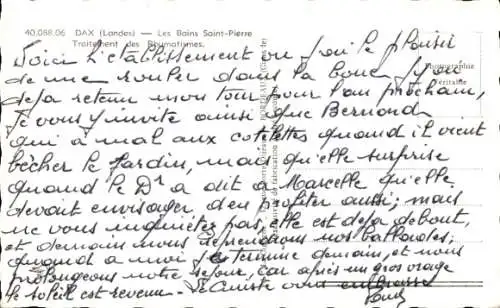 40.088.06 DAX (Landes) — Les Bains Saint-Pierre
Traitement des Rhumatismes.
Voici l'établissement ou j'ai le plaisir
de me rouler dans la boue, j'y ai
deja retenu mon tour pour l'an prochain,
Je vous y invite ainsi que Bernard
qui a mal aux cotelettes quand il vient
bêcher le Jardin, mais qu'elle surprise
quand le Dr a dit a Marcelle qu'elle
devait envisager d'en profiter aussi; mais
ne vous inquietez pas, elle est deja debout,
et demain nous reprendrons nos ballades;
quand a moi je termine demain, et nous
prolongeons notre sejour, car après un gros orage
le soleil est revenu. Je vous embrasse
Photographie
véritable